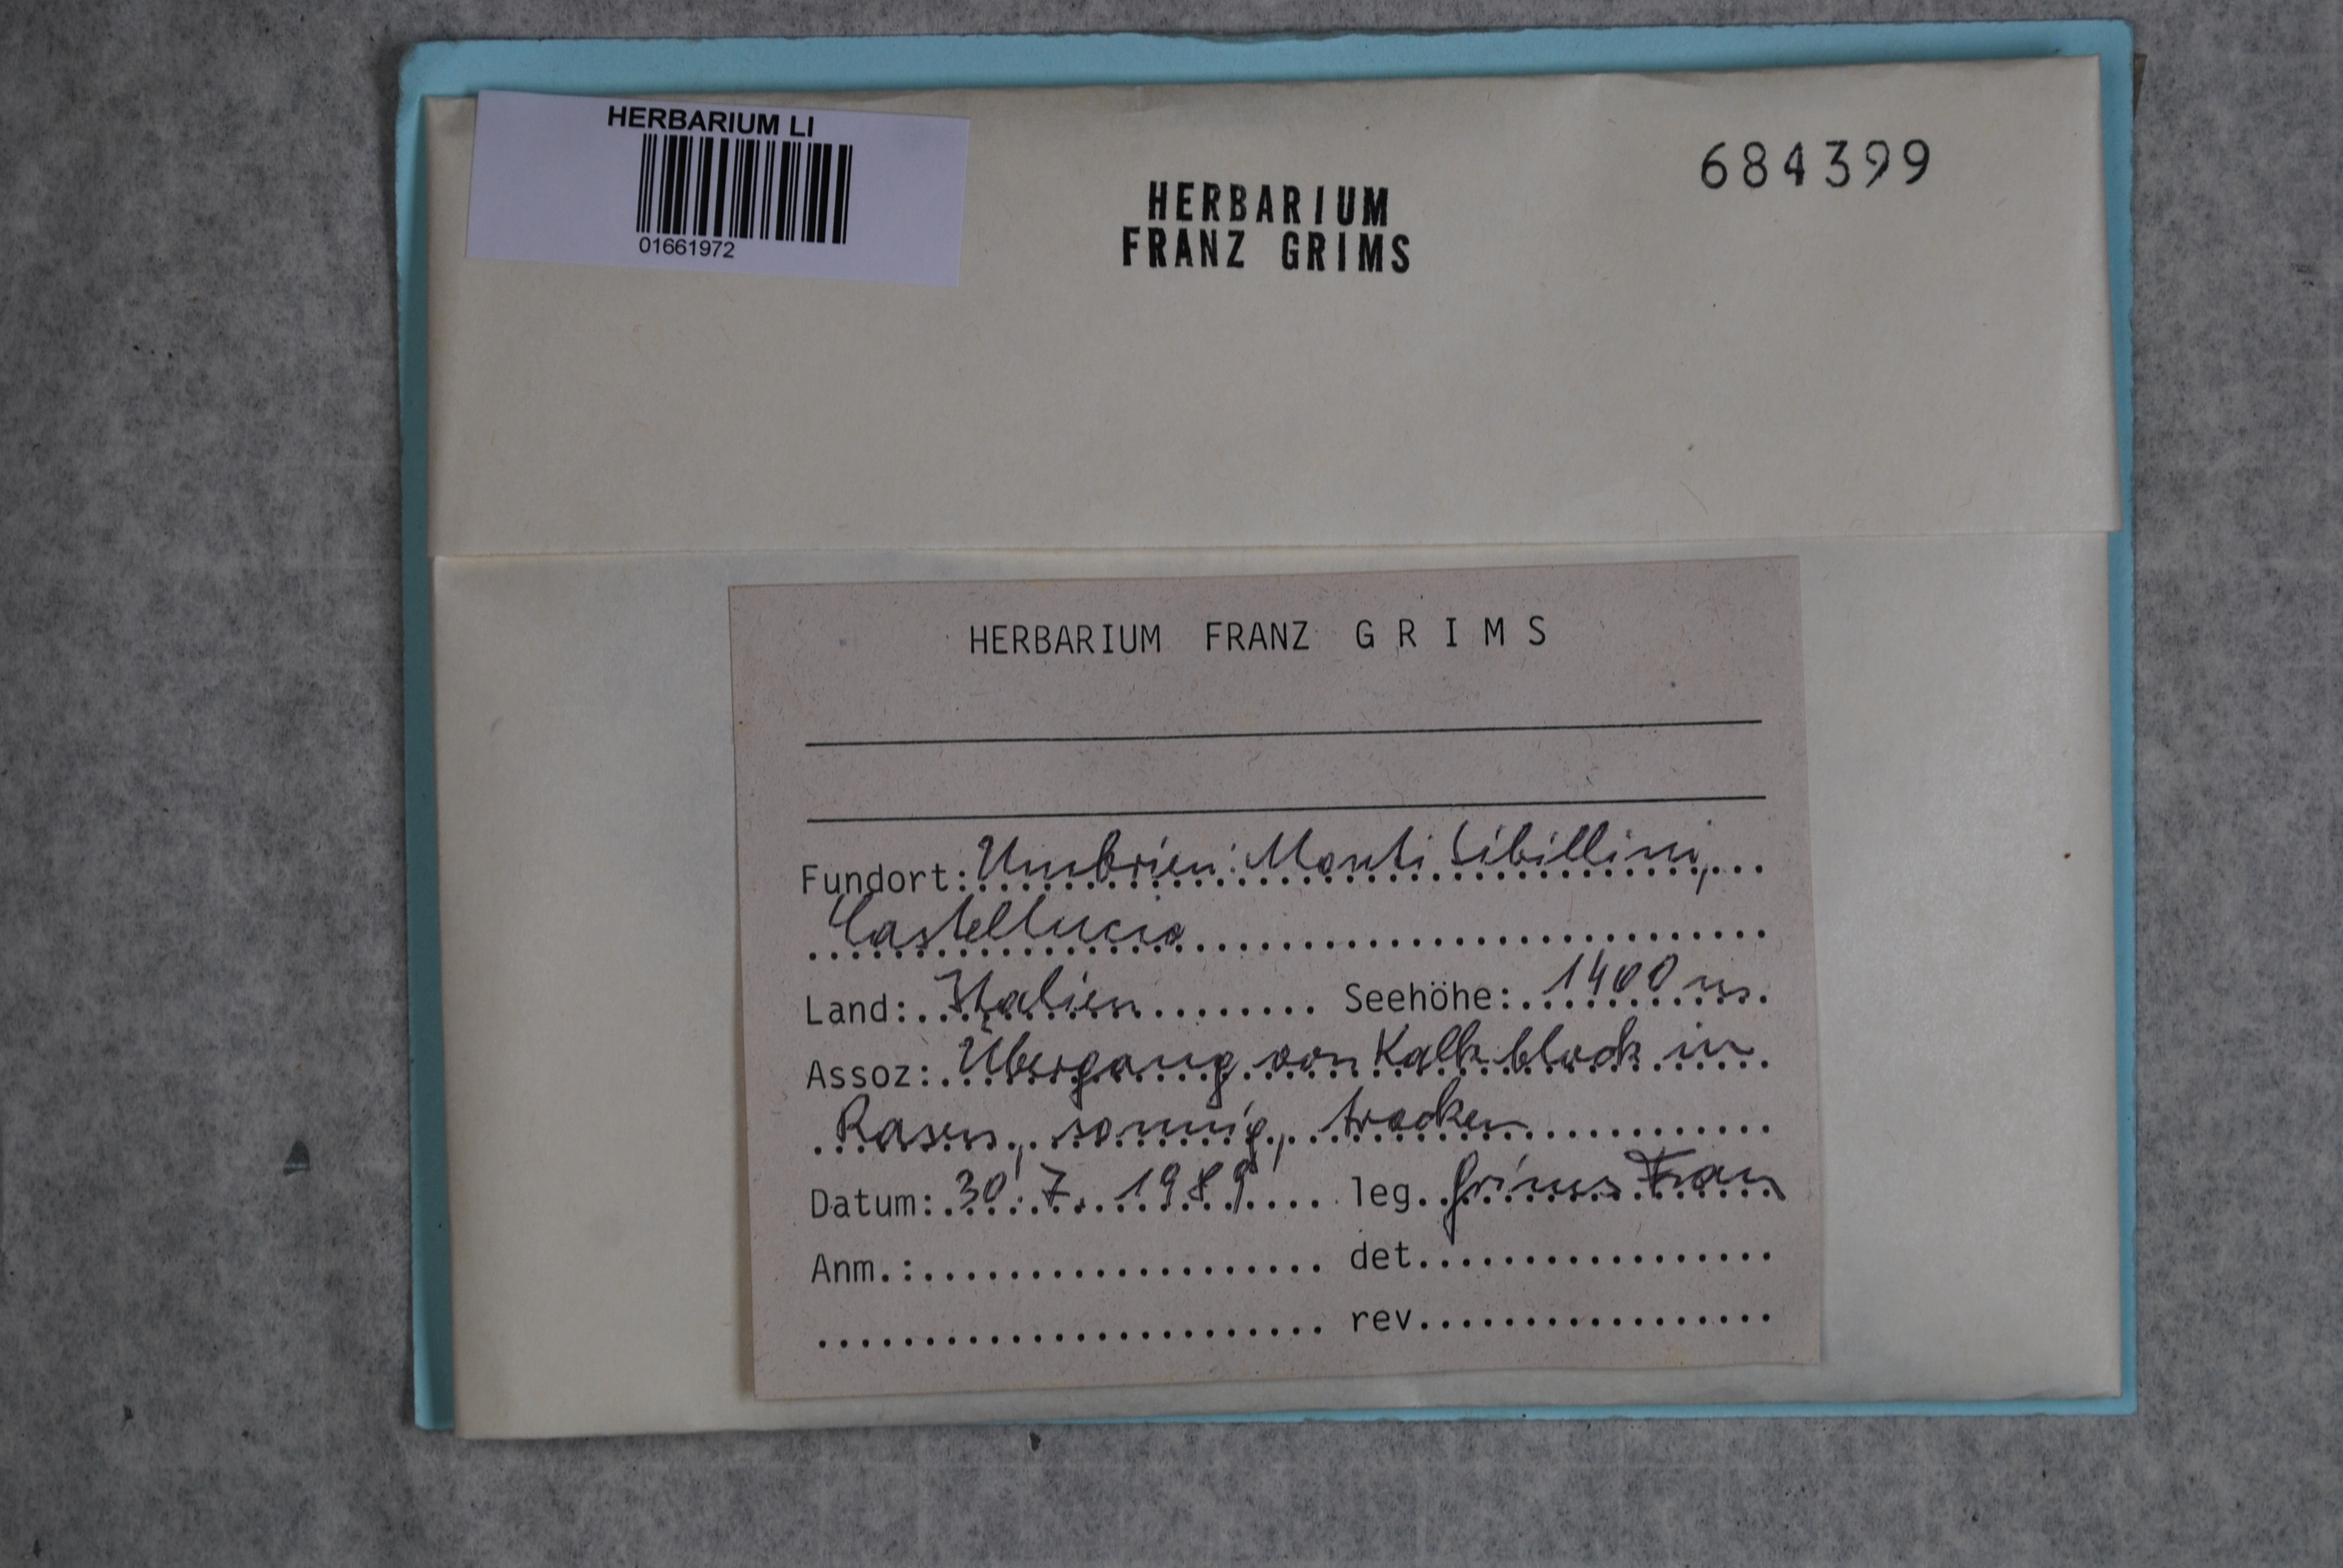 HERBARIUM LI
01661972
HERBARIUM
FRANZ GRIMS
684399
HERBARIUM FRANZ G R I M S
Fundort: Umbrien: Monti Sibillini,
Castellucio
Land: Italien Seehöhe: 1400 m
Assoz: Übergang von Kalkblock in
Rasen, sonnig, trocken
Datum: 30.7.1989 leg. Grims Fran
Anm.: det.
rev.